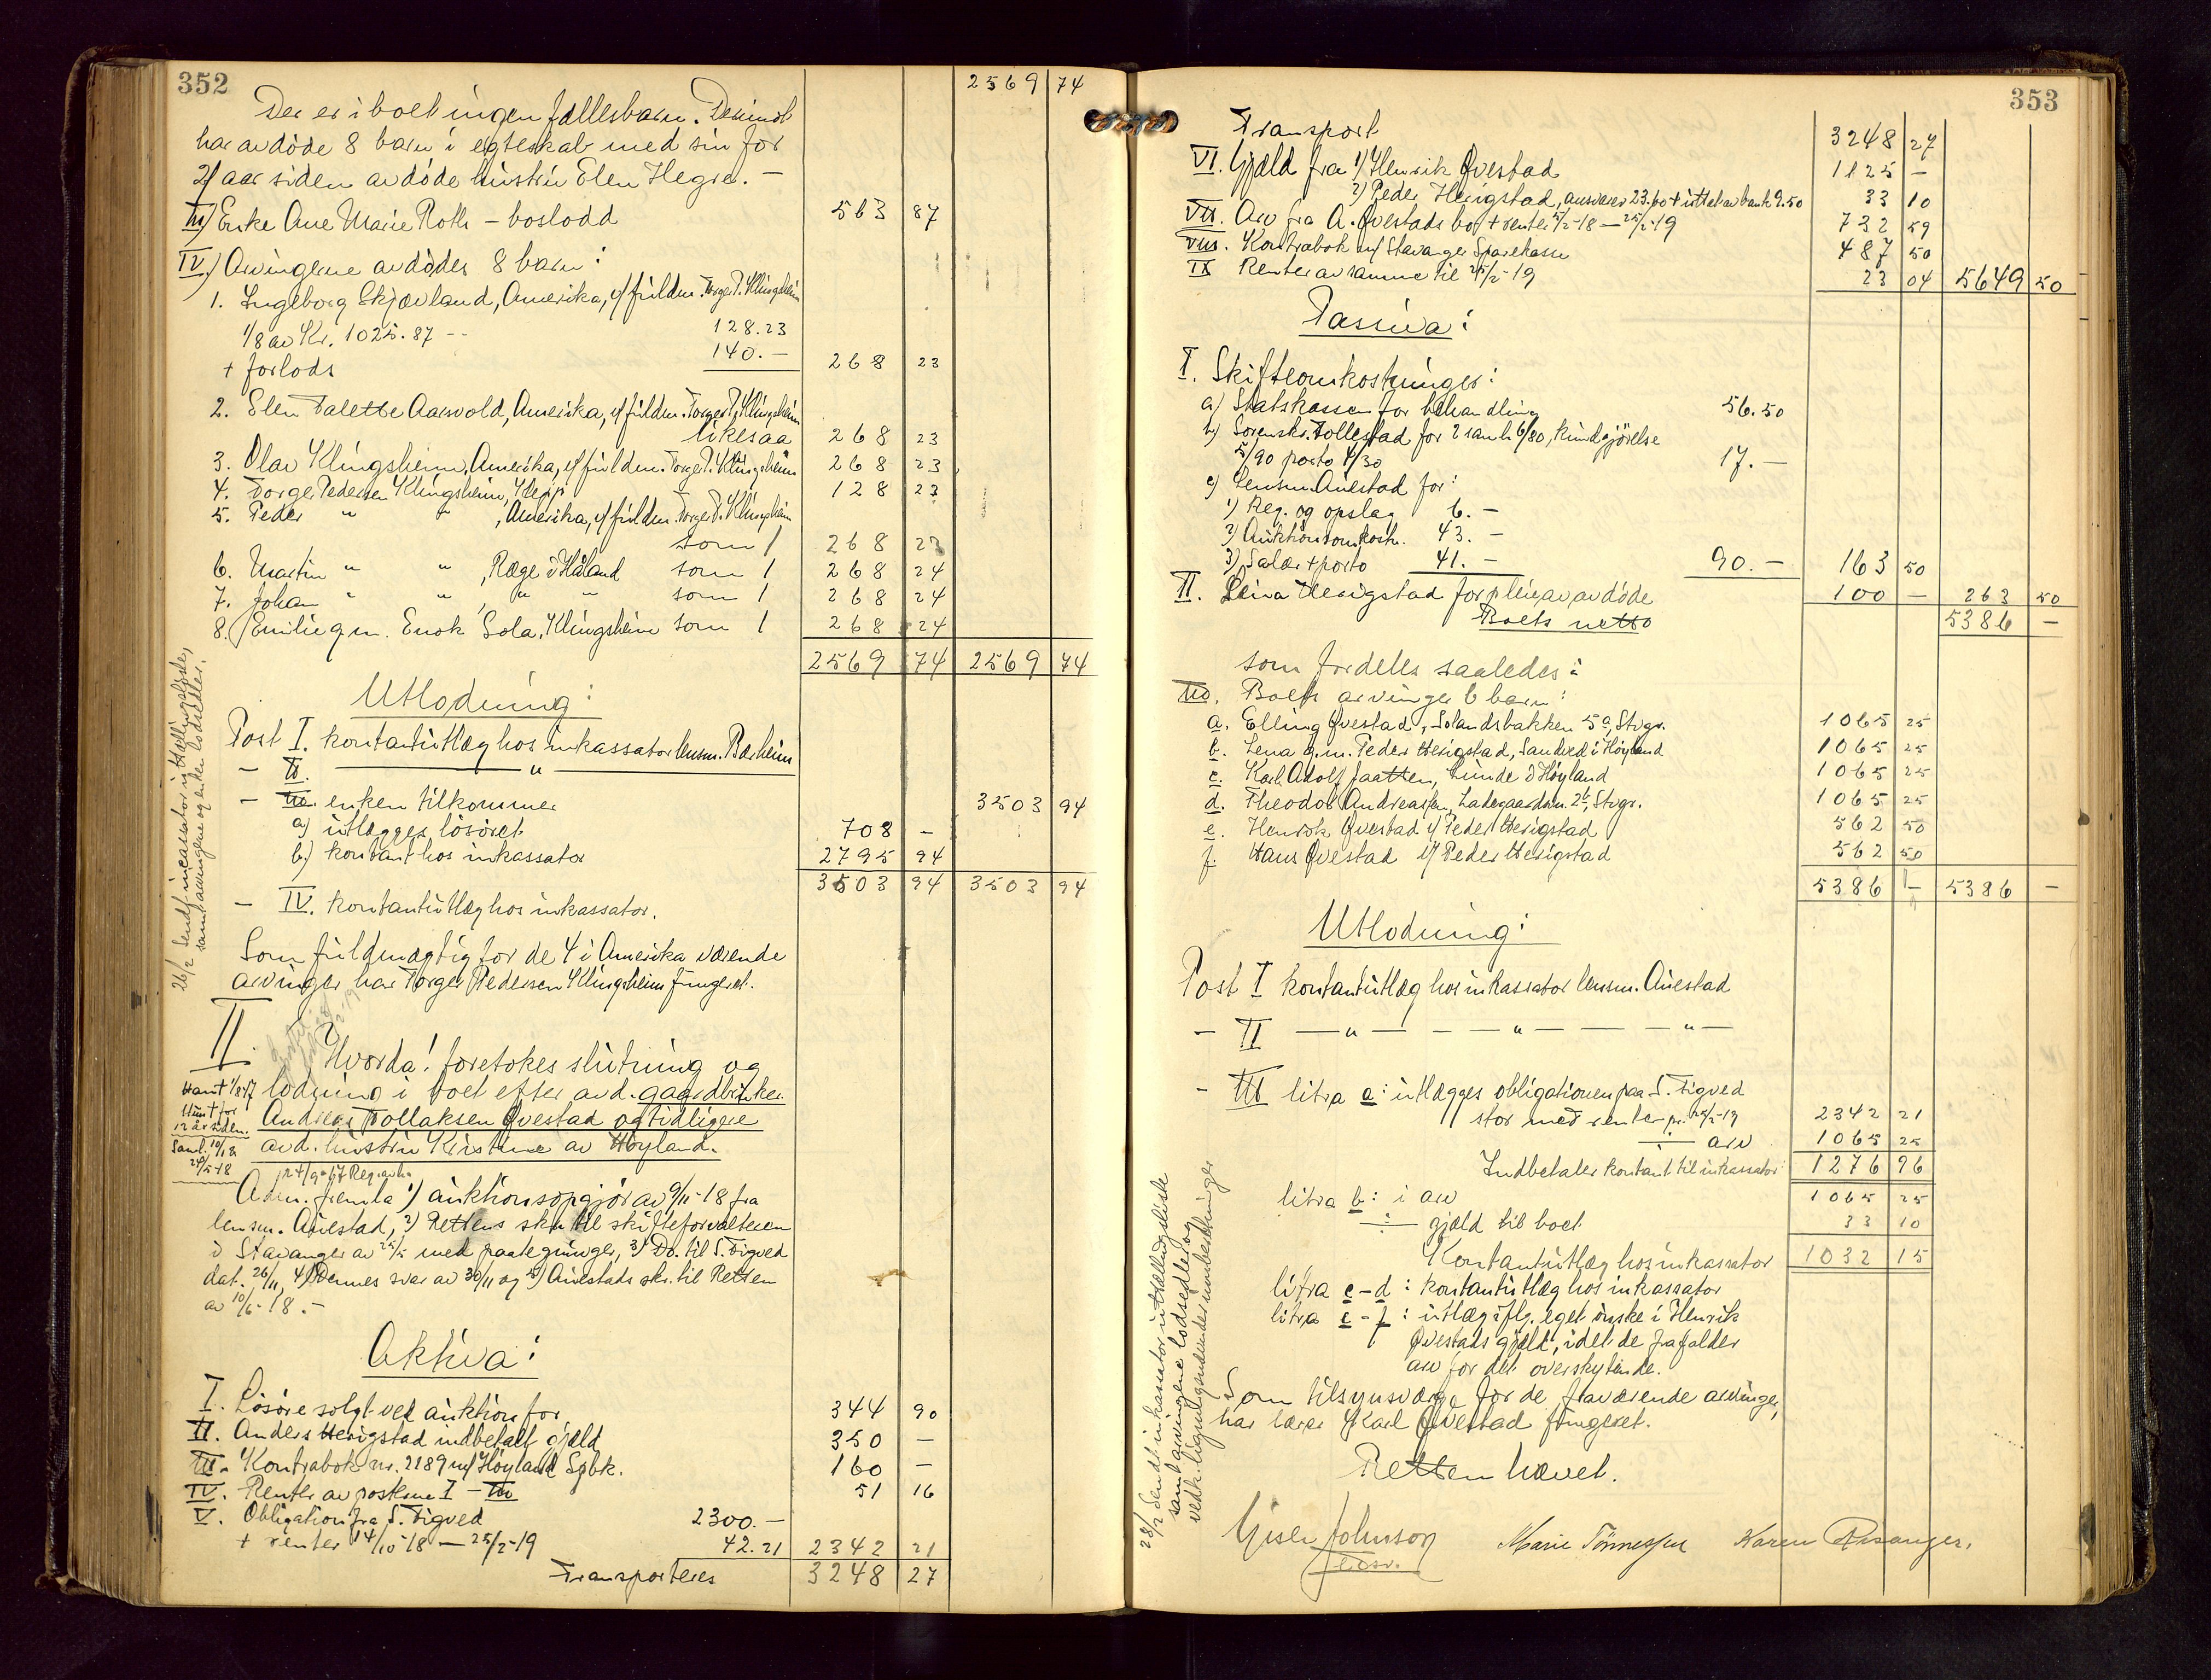 352
2569 74
Der er i boet ingen fællesbarn. Derimot
har avdöde 8 barn i egteskab med sin for
21 aar siden avdöde hustru Elen Hegre. -
III) Enke Ane Marie Roth - boslodd 563 87
IV) Arvingerne avdödes 8 barn:
1. Ingeborg Skjævland, Amerika, v/ fuldm. Torger P. Klingsheim
1/8 av Kr. 1025.87 -- 128.23
+ forlods 140.- 268 23
2. Elen Talette Aarsvold, Amerika, v/ fuldm. Torger P. Klingsheim
likesaa 268 23
3. Olav Klingsheim, Amerika, v/ fuldm. Torger P. Klingsheim 268 23
4. Torger Pedersen Klingsheim, Klepp 128 23
5. Peder " " , Amerika, v/ fuldm. Torger P. Klingsheim
som 1 268 23
6. Martin " " , Ræge i Håland som 1 268 24
7. Johan " " , " " som 1 268 24
8. Emilie g.m. Enok Sola, Klingsheim som 1 268 24
2569 74 2569 74
Utlodning:
Post I. kontantutlæg hos inkassator lensm. Bærheim
- II. "
- III. enken tilkommer 3503 94
a) utlægges lösöret 708 -
b) kontant hos inkassator 2795 94
3503 94 3503 94
- IV. kontantutlæg hos inkassator.
Som fuldmægtig for de 4 i Amerika værende
arvinger har Torger Pedersen Klingsheim fungeret.
26/2 Sendt incassator uttællingsliste,
samt arvingerne og enken lodsedler.
II. Hvorda! foretokes slutning og
lodning i boet efter avd. gaardbruker
Andreas Tollaksen Qvestad og tidligere
avd. hustru Kirstine av Höyland.
Mant 1/8-17
Hust for
12 år siden.
Saml. 10/1-18
24/5-18
Adm. fremla 1) auktionsopgjör av 9/11-18 fra
lensm. Auestad, 2) Rettens skr. til skifteforvalteren
i Stavanger av 25/5 med paategninger, 3) Do. til S. Tigved
dat. 26/11, 4) Dennes svar av 30/11 og 5) Auestads skr. til Retten
av 10/6-18. -
Aktiva:
I. Lösöre solgt ved auktion for 344 90
II. Anders Herigstad indbetalt gjæld 350 -
III. Kontrabok nr. 2189 m/ Höyland Spbk. 160 -
IV. Renter av posterne I - III 51 16
V. Obligation fra S. Tigved 2300.-
+ renter 14/10-18 - 25/2-19 42.21 2342 21
Transporteres 3248 27
353
Transport 3248 27
VI. Gjæld fra 1) Henrik Qvestad 1125 -
2) Peder Herigstad, ansvarer 23.60 + uttat av bank 9.50 33 10
VII. Arv fra A. Qvestads bo + renter 5/2-18 - 25/2-19 732 59
VIII. Kontrabok m/ Stavanger Sparekasse 487 50
IX Renter av samme til 25/2-19 23 04 5649 50
Passiva:
I. Skifteomkostninger:
a) Statskassen for behandling 56.50
b) Sorenskr. Tollestad for 2 saml. 6/80, kundgjörelse
5/90 porto 4/30 17.-
c) Lensm. Auestad for:
1) Reg. og opslag 6.-
2) Auktionsomkostn. 43.-
3) Salær + porto 41.- 90.- 163 50
II. Lena Herigstad for pleie av avdöde 100 - 263 50
Boets netto 5386 -
som fordeles saaledes:
III. Boets arvinger 6 barn:
a. Elling Qvestad, Solandsbakken 5a, Stvgr. 1065 25
b. Lena g.m. Peder Herigstad, Sandved i Höyland 1065 25
c. Karl Adolf Jaatten, Lunde i Höyland 1065 25
d. Theodor Andreassen, Ladegaardsvn. 2b, Stvgr. 1065 25
e. Henrik Qvestad v/ Peder Herigstad 562 50
f. Hans Qvestad v/ Peder Herigstad 562 50
5386 - 5386 -
Utlodning:
Post I kontantutlæg hos inkassator lensm. Auestad
- II - " - - - " - - - " -
- III litra a: utlægges obligationen paa S. Tigved
stor med renter pr. 25/2-19 2342 21
÷ arv 1065 25
Indbetaler kontant til inkassator: 1276 96
litra b: i arv 1065 25
÷ gjæld til boet 33 10
Kontantutlæg hos inkassator 1032 15
litra c-d: kontantutlæg hos inkassator
litra e-f: utlæg iflg. eget önske i Henrik
Qvestads gjæld, idet de frafalder
arv for det overskytende.
Som tilsynsværge for de fraværende arvinger,
har lærer Karl Qvestad fungeret.
Retten hævet.
28/2 Sendt inkassator uttællingsliste
samt arvingerne lodsedler og
vedk. ligningsvæsen underretninger
Gisle Johnson
edsv.
Marie Tönnessen Karen Risanger.